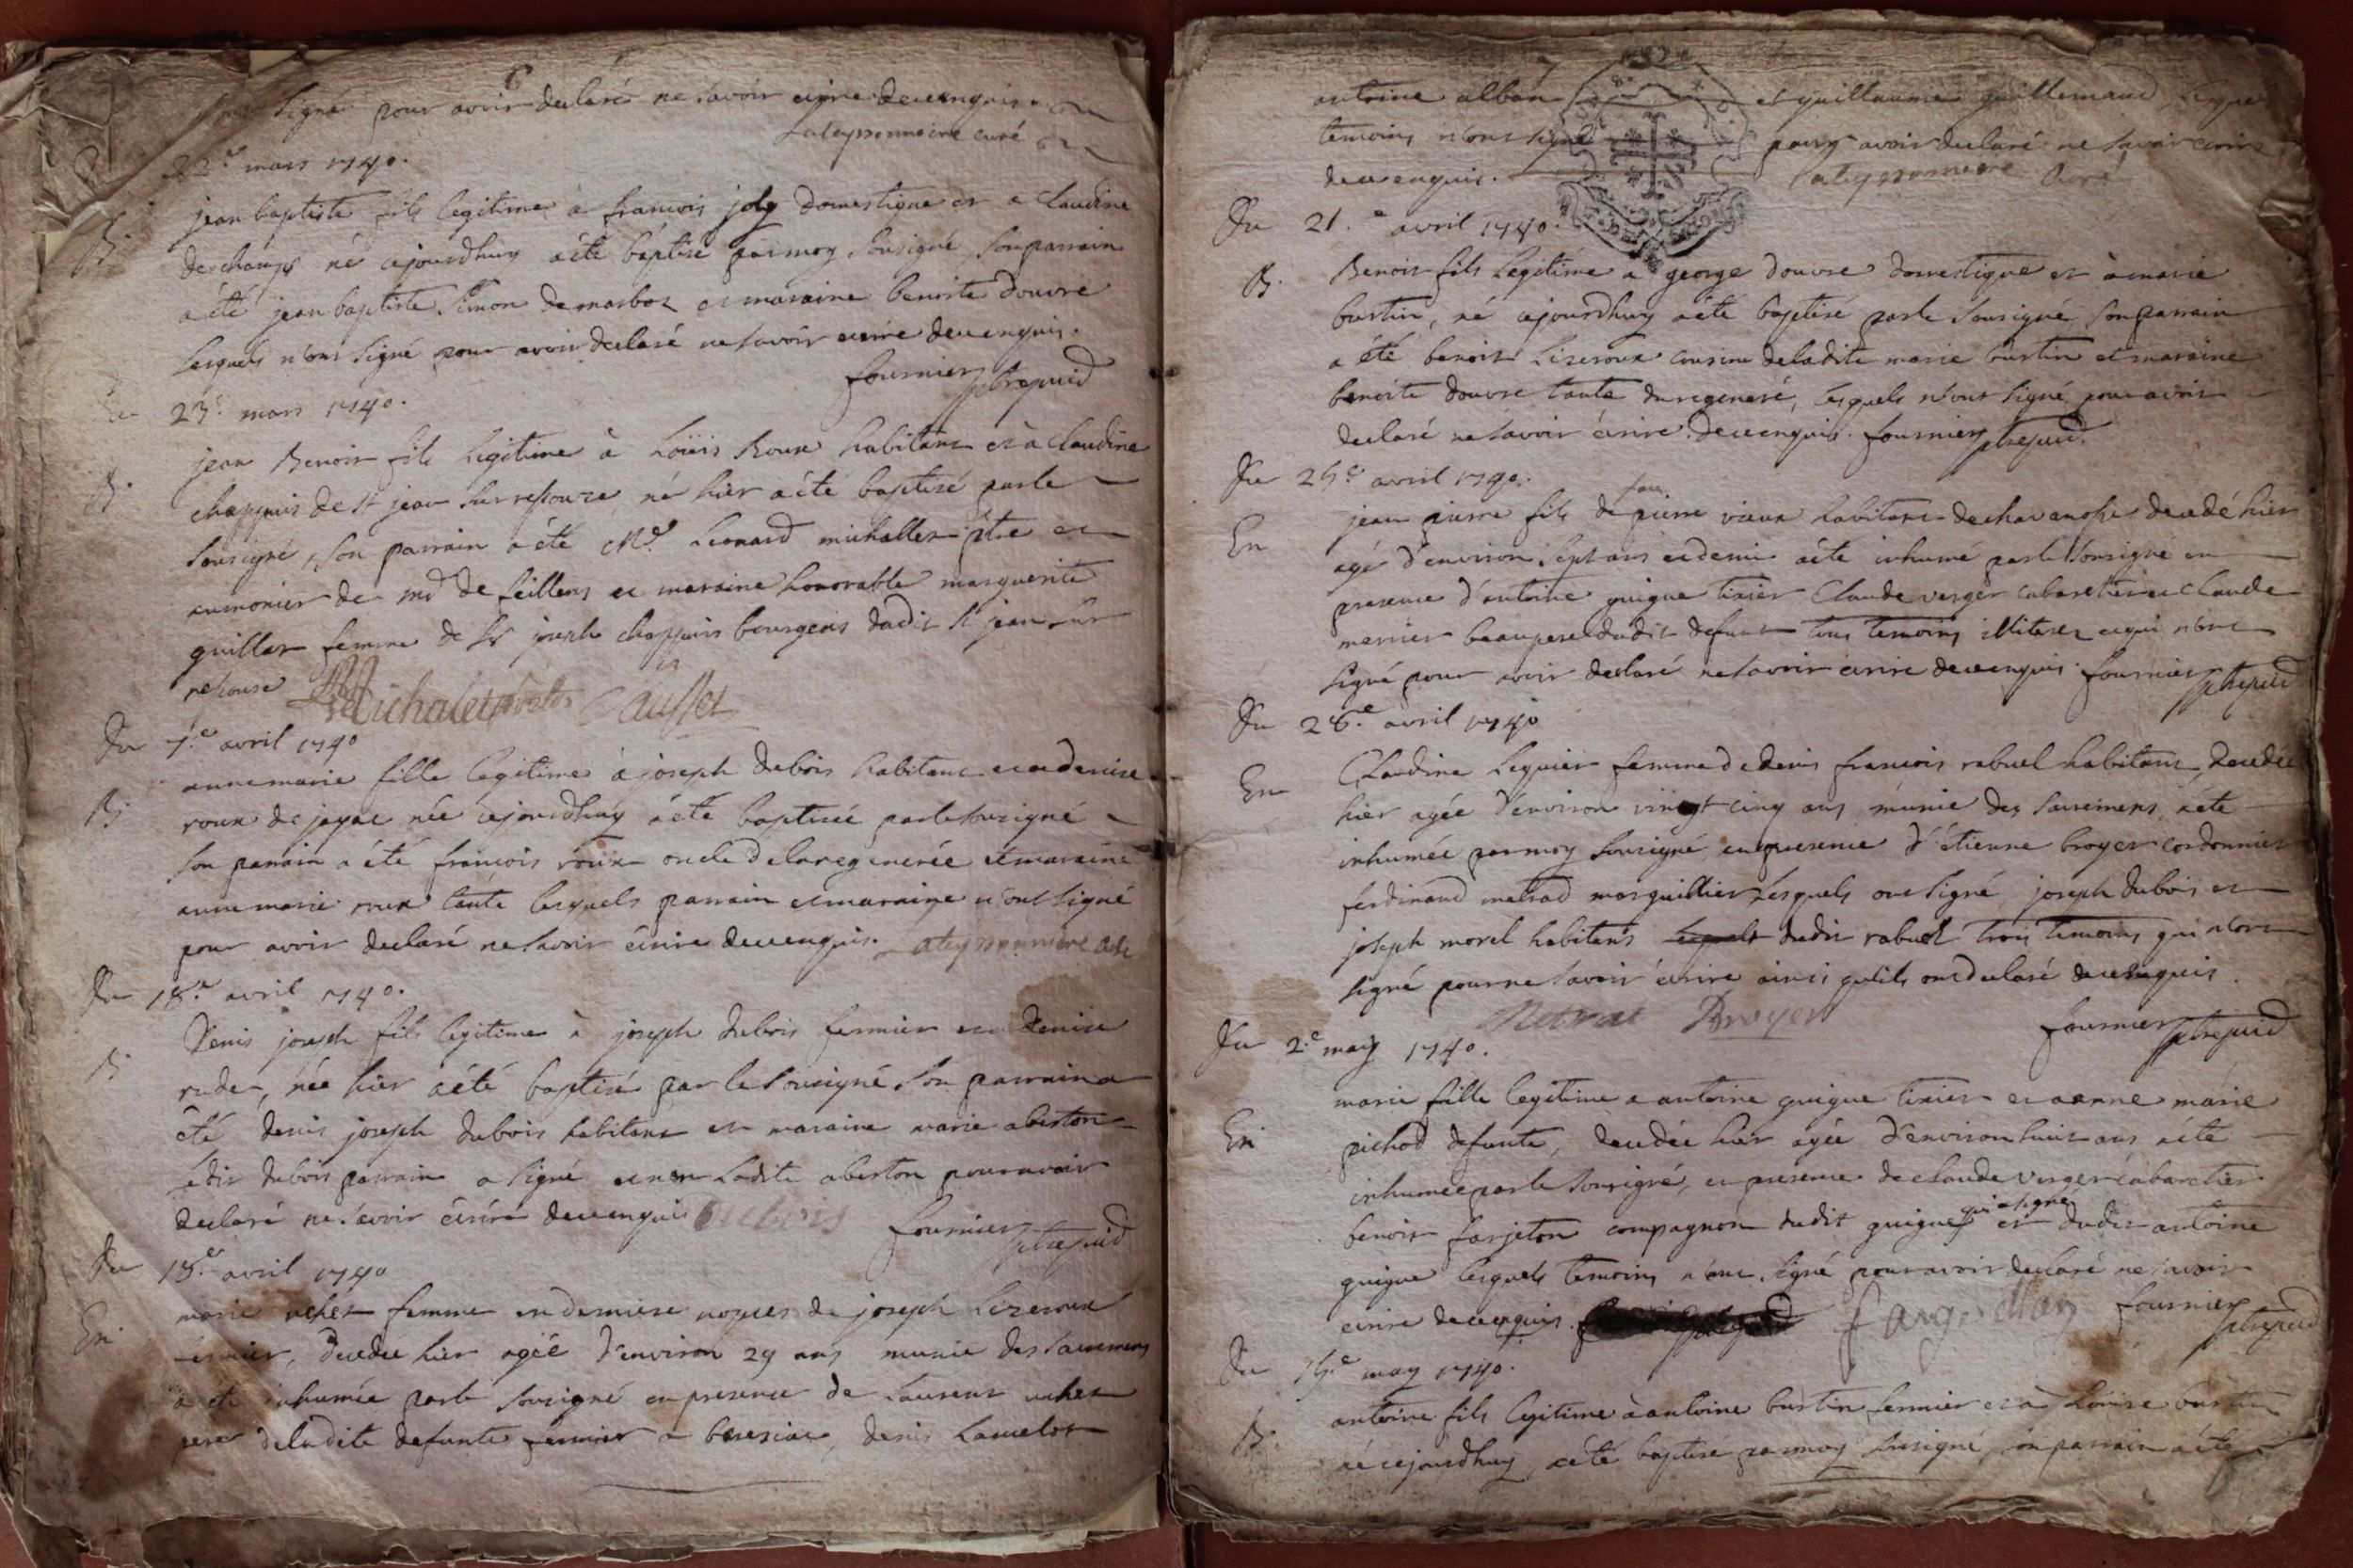 signé pour avoir declaré ne savoir ecrire de ce enquis.
Lateyssonniere curé
22e mars 1740.
B. jean baptiste fils legitime à francois joly domestique et a Claudine
deschamps né cejourdhuy a été baptisé par moy soussigné son parrain
a été jean baptiste Simon de marboz et maraine benoite Douvre
lesquels n'ont signé pour avoir declaré ne savoir ecrire de ce enquis.
fournier
Du 23e mars 1740.
B. jean Benoit fils legitime à Loüis Roux habitant et à Claudine
chappuis de st jean sur ressouze né hier a été baptisé par le
sousigné, son parrain a été Mre Leonard michallet ptre et
aumonier de md de feillens et maraine honorable marguerite
guillot femme de sr joseph chappuis bourgeois dudit st jean sur
resouse Michalet
Du 7e avril 1740
B. anne marie fille legitime à joseph dubois habitant et a denise
roux de jayac née cejourdhuy a été baptisée par le sousigné
son parrain a été francois roux oncle de la regenerée et maraine
anne marie roux tante lesquels parrain et maraine n'ont signé
pour avoir declaré ne savoir écrire de ce enquis. Lateyssonniere curé
Du 18e avril 1740.
B Denis joseph fils legitime à joseph dubois fermier et a Denise
rude, née hier a été baptisé par le sousigné son parrain a
été denis joseph dubois habitant et maraine marie aberton
ledit dubois parrain a signé et non ladite aberton pour avoir
declaré ne savoir écrire de ce enquis Dubois fournier
Du 18e avril 1740
En. marie uchet femme en derniere nopces de joseph Lizeroux
decedée hier agée d'environ 29 ans munie des sacremens
a été inhumée par le sousigné en presence de Laurent uchet
pere de ladite defunte fermier a beresiac, denis Lamelot
antoine alban et guillaume guillemaud
temoins n'ont signé pour avoir declaré ne savoir ecrire
de ce enquis. Lateyssonniere Curé
Du 21.e avril 1740.
B. Benoit fils legitime a george douvre domestique et à marie
burtin, né cejourdhuy a été baptisé par le sousigné son parrain
a été benoit Lizeroux cousin de ladite marie burtin et maraine
benoite douvre tante du regeneré, lesquels n'ont signé pour avoir
declaré ne savoir écrire de ce enquis. fournier
Du 25e avril 1740.
En jean pierre fils de feu pierre vieux habitant de chavanosse decedé hier
agé d'environ sept ans et demi a été inhumé par le sousigné en
presence d'antoine guigue tixier Claude verger cabaretier et claude
mercier beaupere dudit defunt tous temoins illiterez et qui n'ont
signé pour avoir declaré ne savoir écrire de ce enquis. fournier
Du 28.e avril 1740
En Claudine Lequier femme de denis francois rabuel habitant, decedée
hier agée d'environ vingt cinq ans munie des sacremens a été
inhumée par moy sousigné en presence d'étienne broyer cordonnier
ferdinand metrad marguillier lesquels ont signé joseph dubois et
joseph morel habitans dudit rabuel trois temoins qui n'ont
signé pour ne savoir écrire ainsi qu'ils ont declaré de ce enquis.
Metrat Broyer fournier
Du 2.e may 1740.
En marie fille legitime a antoine guigue tixier et a anne marie
pichod defunte, decedée hier agée d'environ huit ans a été
inhumée par le sousigné, en presence de claude verger cabaretier
benoit farjeton compagnon dudit guigue, qui a signé et dudit antoine
guigue lesquels temoins n'ont signé pour avoir declaré ne savoir
ecrire de ce enquis. fournier
Du may 1740.
B. antoine fils legitime à antoine burtin fermier et à Loüise
né cejourdhuy a été baptisé par moy sousigné, son parrain a été